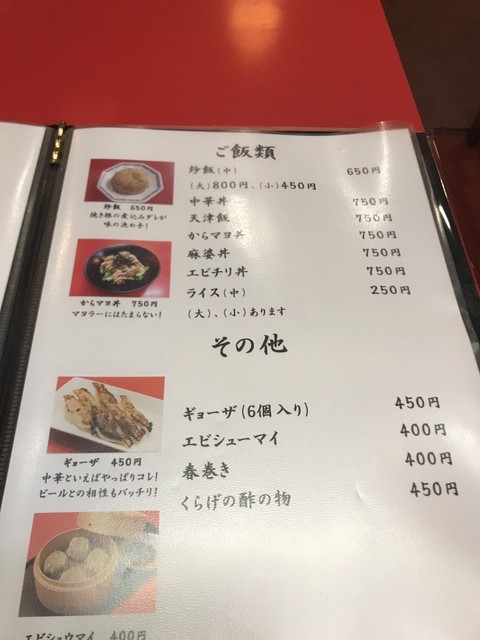 ご飯類
炒飯(中) 650円
(大)800円、(小)450円
中華丼 750円
天津飯 750円
からマヨ丼 750円
麻婆丼 750円
エビチリ丼 750円
ライス(中) 250円
(大)、(小)あります
炒飯 650円
焼き豚の煮込みダレが
味の決め手!
からマヨ丼 750円
マヨラーにはたまらない!
その他
ギョーザ(6個入り) 450円
エビシューマイ 400円
春巻き 400円
くらげの酢の物 450円
ギョーザ 450円
中華といえばやっぱりコレ!
ビールとの相性もバッチリ!
エビシュウマイ 400円